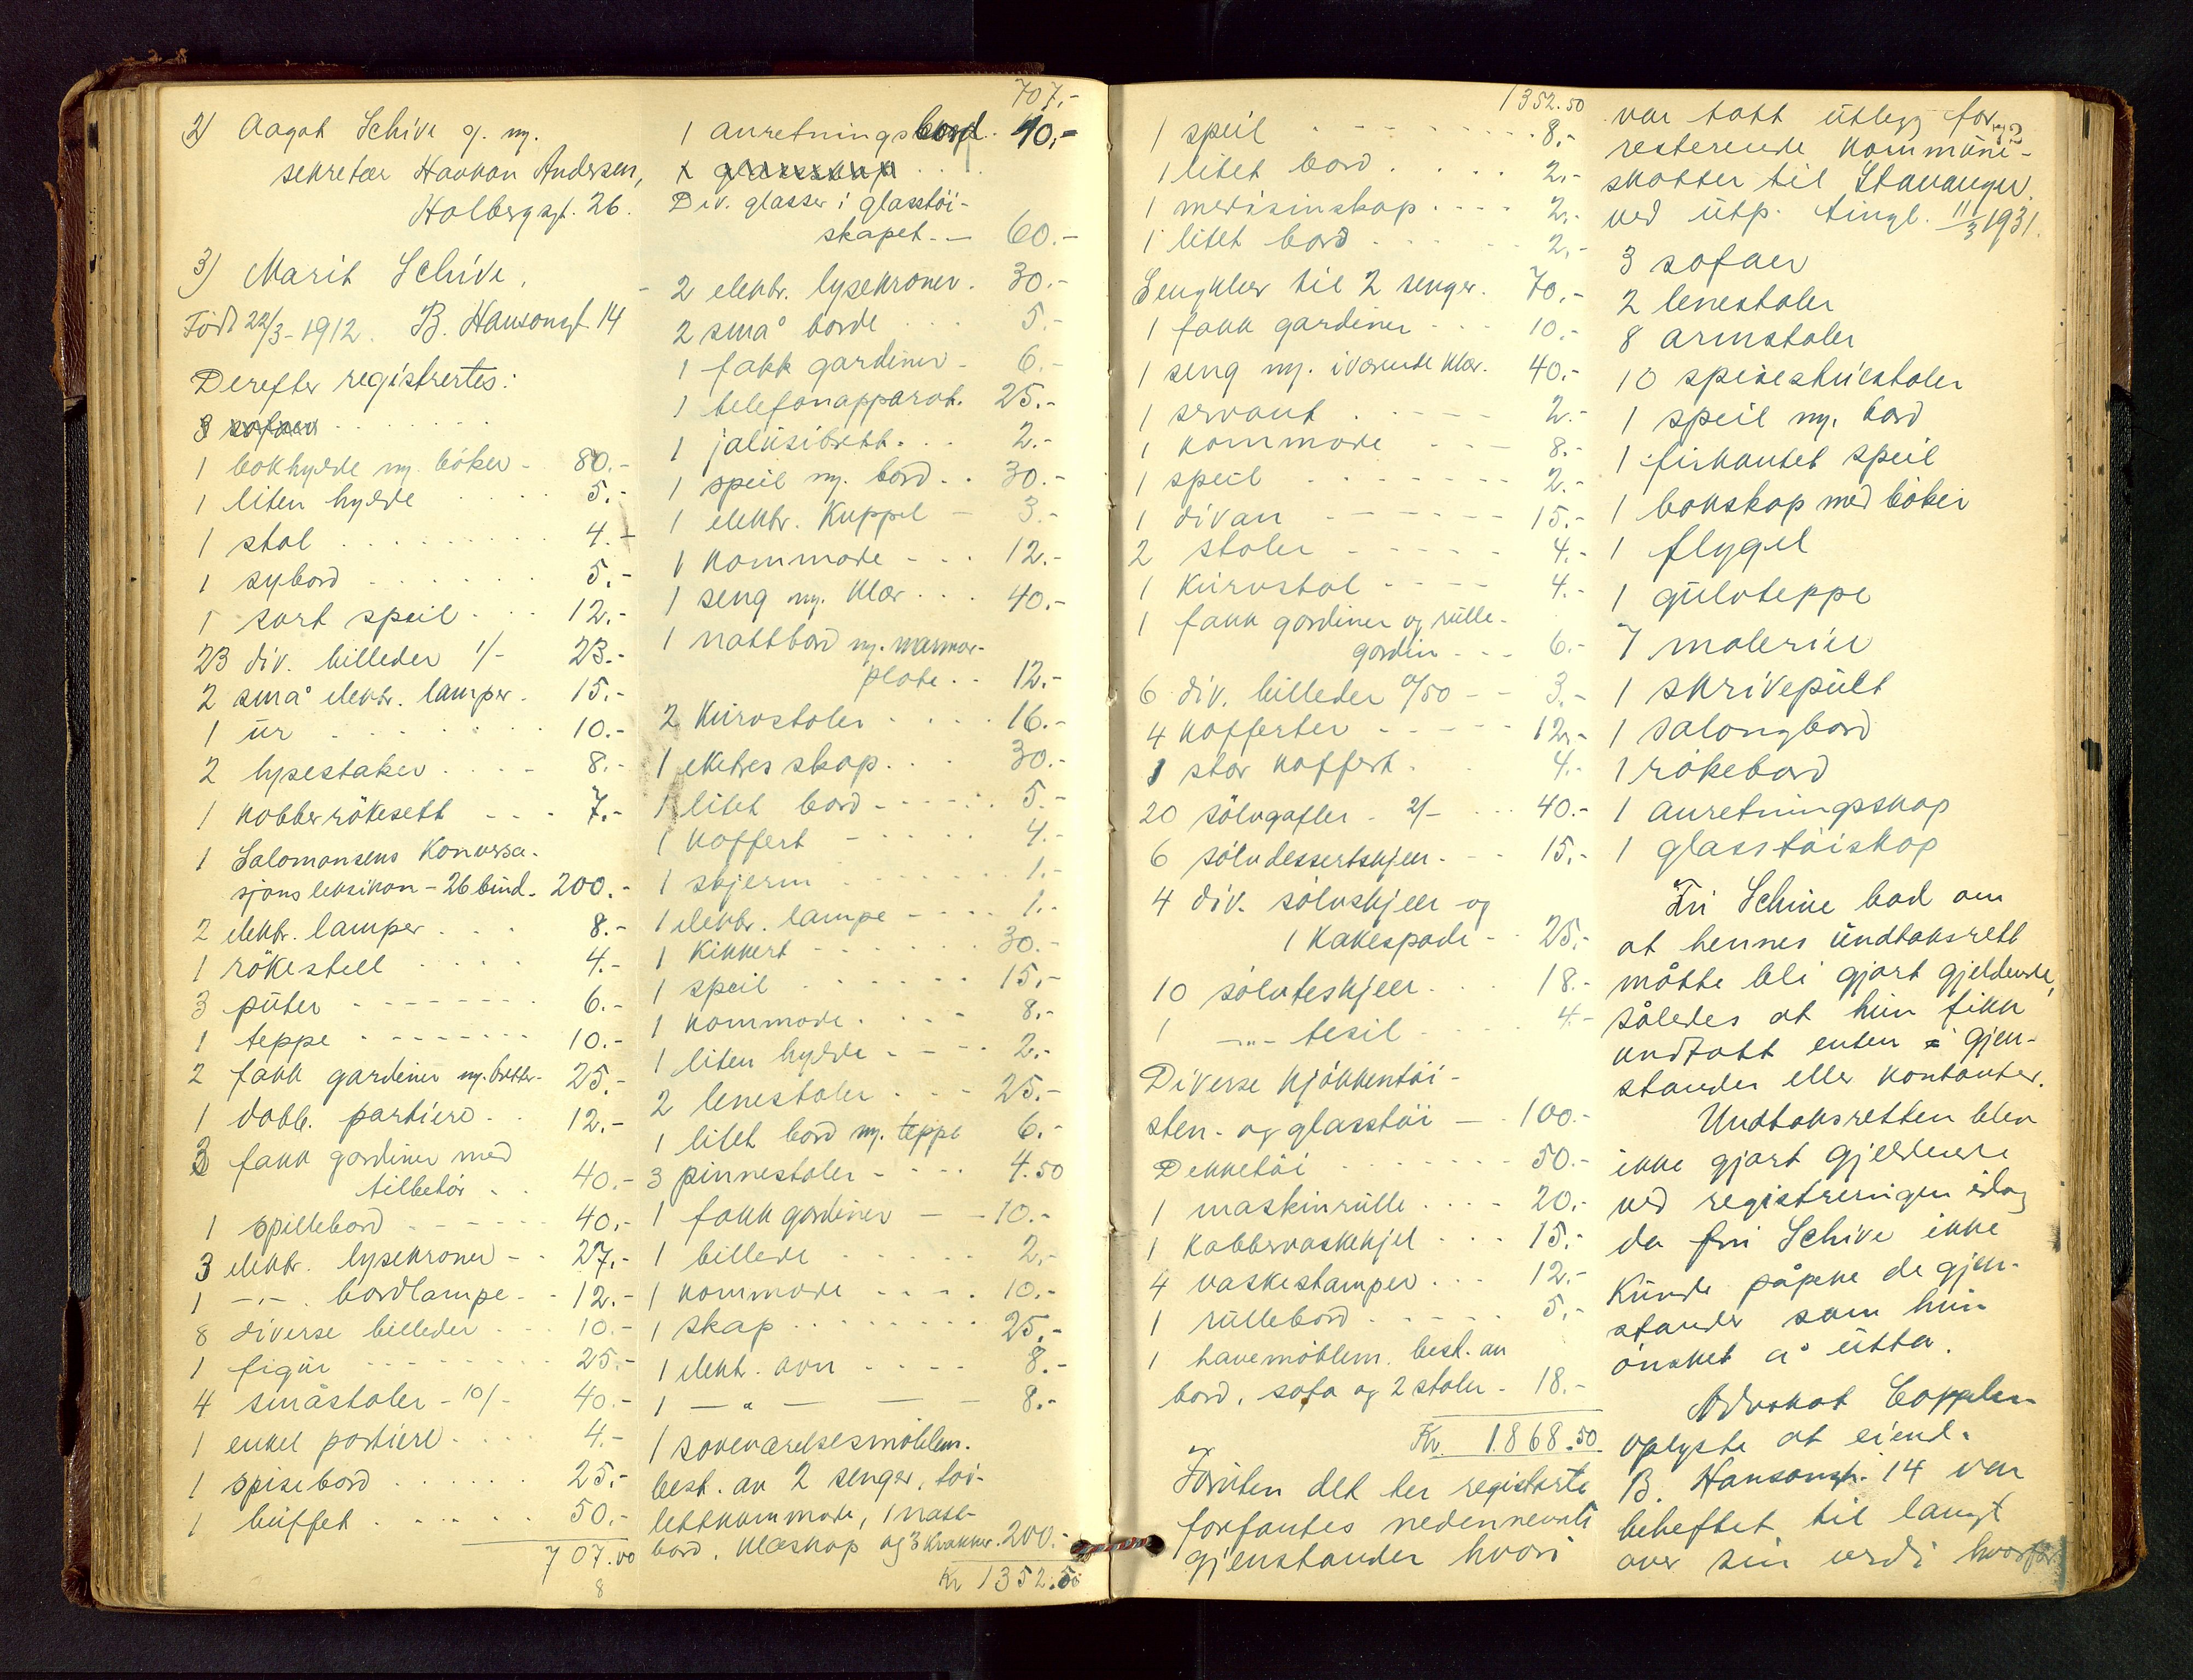 2) Aagot Schive g. m.
sekretær Haakon Andersen,
Holbergsgt. 26.
3) Marit Schive,
Født 22/3-1912. B. Hansonsgt. 14
Derefter registrertes:
3 sofaer . . . . . .
1 bokhylde m. bøker - 80.-
1 liten hylde . . . . 5.-
1 stol . . . . . . . . 4.-
1 sybord . . . . . . 5.-
1 sort speil . . . 12.-
23 div. billeder 1/- 23.-
2 små elektr. lamper . 15.-
1 ur . . . . . . . 10.-
2 lysestaker . . . - 8.-
1 kobberrökesett - - . 7.-
1 Salomonsens Konversa-
sjonsleksikon - 26 bind . 200.-
2 elektr. lamper . . . 8.-
1 rökestell . . . . 4.-
3 puter - - - - - - - 6.-
1 teppe - - - - - - - 10.-
2 fakk gardiner m. brett- 25.-
1 dobb. portiere . . 12.-
3 fakk gardiner med
tilbehör . . 40.-
1 spillebord - - - - - 40.-
3 elektr. lysekroner - . 27.-
1 -"- . bordlampe - - 12.-
8 diverse billeder . . . 10.-
1 figur - - - - - - - - 25.-
4 småstoler - 10/- 40.-
1 enkel portiere . . . . 4.-
1 spisebord . . . . . . 25.-
1 buffet . . . . . . 50.-
707.00
8
707.-
1 anretningsbord . 40.-
1 glasskap . . .
Div. glasser i glasstöi-
skapet - - 60.-
2 elektr. lysekroner . 30.-
2 små borde . . . 5.-
1 fakk gardiner - 6.-
1 telefonapparat . 25.-
1 jalusibrett . . . 2.-
1 speil m. bord . . 30.-
1 elektr. Kuppel - 3.-
1 kommode - - . 12.-
1 seng m. klær . . . 40.-
1 nattbord m. marmor-
plate . . 12.-
2 Kurvstoler . . . . 16.-
1 eketres skap . . . 30.-
1 litet bord - - - - . 5.-
1 koffert - . . . . . 4.-
1 skjerm . . . . . . . 1.-
1 elektr. lampe - - . . 1.-
1 Kikkert - - . . . . 30.-
1 speil . . . . . . 15.-
1 kommode . . - . 8.-
1 liten hylde - - - - 2.-
2 lenestoler . . . - 25.-
1 litet bord m. teppe 6.-
3 pinnestoler - . . . 4.50
1 fakk gardiner - - 10.-
1 billede . . . . . . 2.-
1 kommode . . . . 10.-
1 skap . . . . . . . . 25.-
1 elekt. ovn . . . . 8.-
1 - " - - - 8.-
1 soveværelsesmöblem.
best. av 2 senger, toi-
lettkommode, 1 natt-
bord, klæskap og 3 krakker. 200.-
Kr 1352.50
1352.50
1 speil . - - - - - - . . 8.-
1 litet bord . . . . . 2.-
1 medisinskap . . - - 2.-
1 litet bord . . . . - - 2.-
Sengklær til 2 senger . 70.-
1 fakk gardiner - - - 10.-
1 seng m. iværende klær . 40.-
1 servant . . - - - 2.-
1 kommode - - - 8.-
1 speil . . - - - - - - 2.-
1 divan - - - - - - 15.-
2 stoler - - - - - 4.-
1 Kurvstol - - - - 4.-
1 fakk gardiner og rulle-
gardin - - - 6.-
6 div. billeder 0/50 - - 3.-
4 kofferter - - - - - 12.-
1 stor koffert . . 4.-
20 sölvgafler - 2/- . . . 40.-
6 sölvdessertskjeer . - . 15.-
4 div. sölvskjeer og
1 Kakespade - . 25.-
10 sölvteskjeer . . . 18.-
1 -"- tesil . . . . 4.-
Diverse kjökkentöi-
sten- og glasstöi - - 100.-
Dekketöi . . . . . - - 50.-
1 maskinrulle . . . - 20.-
1 Kobbervaskekjel . . . 15.-
4 vaskestamper . . . 12.-
1 rullebord . . - - - - 5.-
1 havemöblem. best. av
bord, sofa og 2 stoler - 18.-
Kr. 1868.50
Foruten det her registrerte
forfantes nedennevnte
gjenstander hvori
var tatt utlegg for
resterende kommune-
skatter til Stavanger.
ved utp. tingl. 11/3 1931.
3 sofaer
2 lenestoler
8 armstoler
10 spisestuestoler
1 speil m. bord
1 firkantet speil
1 bokskap med böker
1 flygel
1 gulvteppe
7 malerier
1 skrivepult
1 salongbord
1 rökebord
1 anretningsskap
1 glasstöiskap
Fru Schive bad om
at hennes undtaksrett
måtte bli gjort gjeldende,
således at hun fikk
undtatt enten i gjen-
stander eller kontanter.
Undtaksretten blev
ikke gjort gjeldende
ved registreringen idag
da fru Schive ikke
kunde påpeke de gjen-
stander som hun
önsket å utta.
Advokat Coppelen
oplyste at eiend.
B. Hansonsgt. 14 var
beheftet til langt
over sin verdi hvorfor